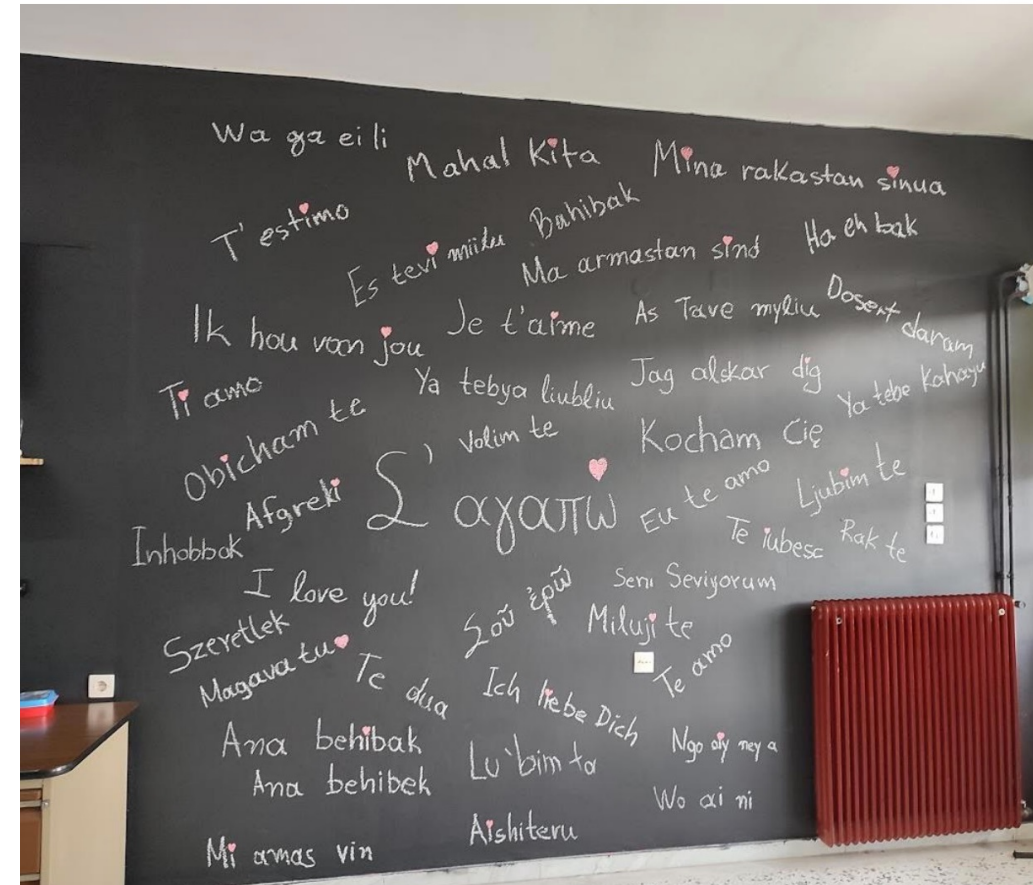 Wa ga ei li
Mahal Kita
Mina rakastan sinua
T' estimo
Bahibak
Es tevi miilu
Ma armastan sind
Ha eh bak
Ik hou van jou
Je t'aime
As Tave myliu
Dosert daram
Ti amo
Ya tebya liubliu
Jag alskar dig
Ya tebe Kahayu
Obicham te
Volim te
Kocham Cię
Afgreki
Σ' αγαπώ
Eu te amo
Ljubim te
Inhobbok
Te iubesc
Rak te
I love you!
Σοῦ ἐρῶ
Seni Seviyorum
Szeretlek
Miluji te
Magava tu
Te dua
Ich liebe Dich
Te amo
Ana behibak
Lu'bim ta
Ngo oiy ney a
Ana behibek
Wo ai ni
Aishiteru
Mi amas vin